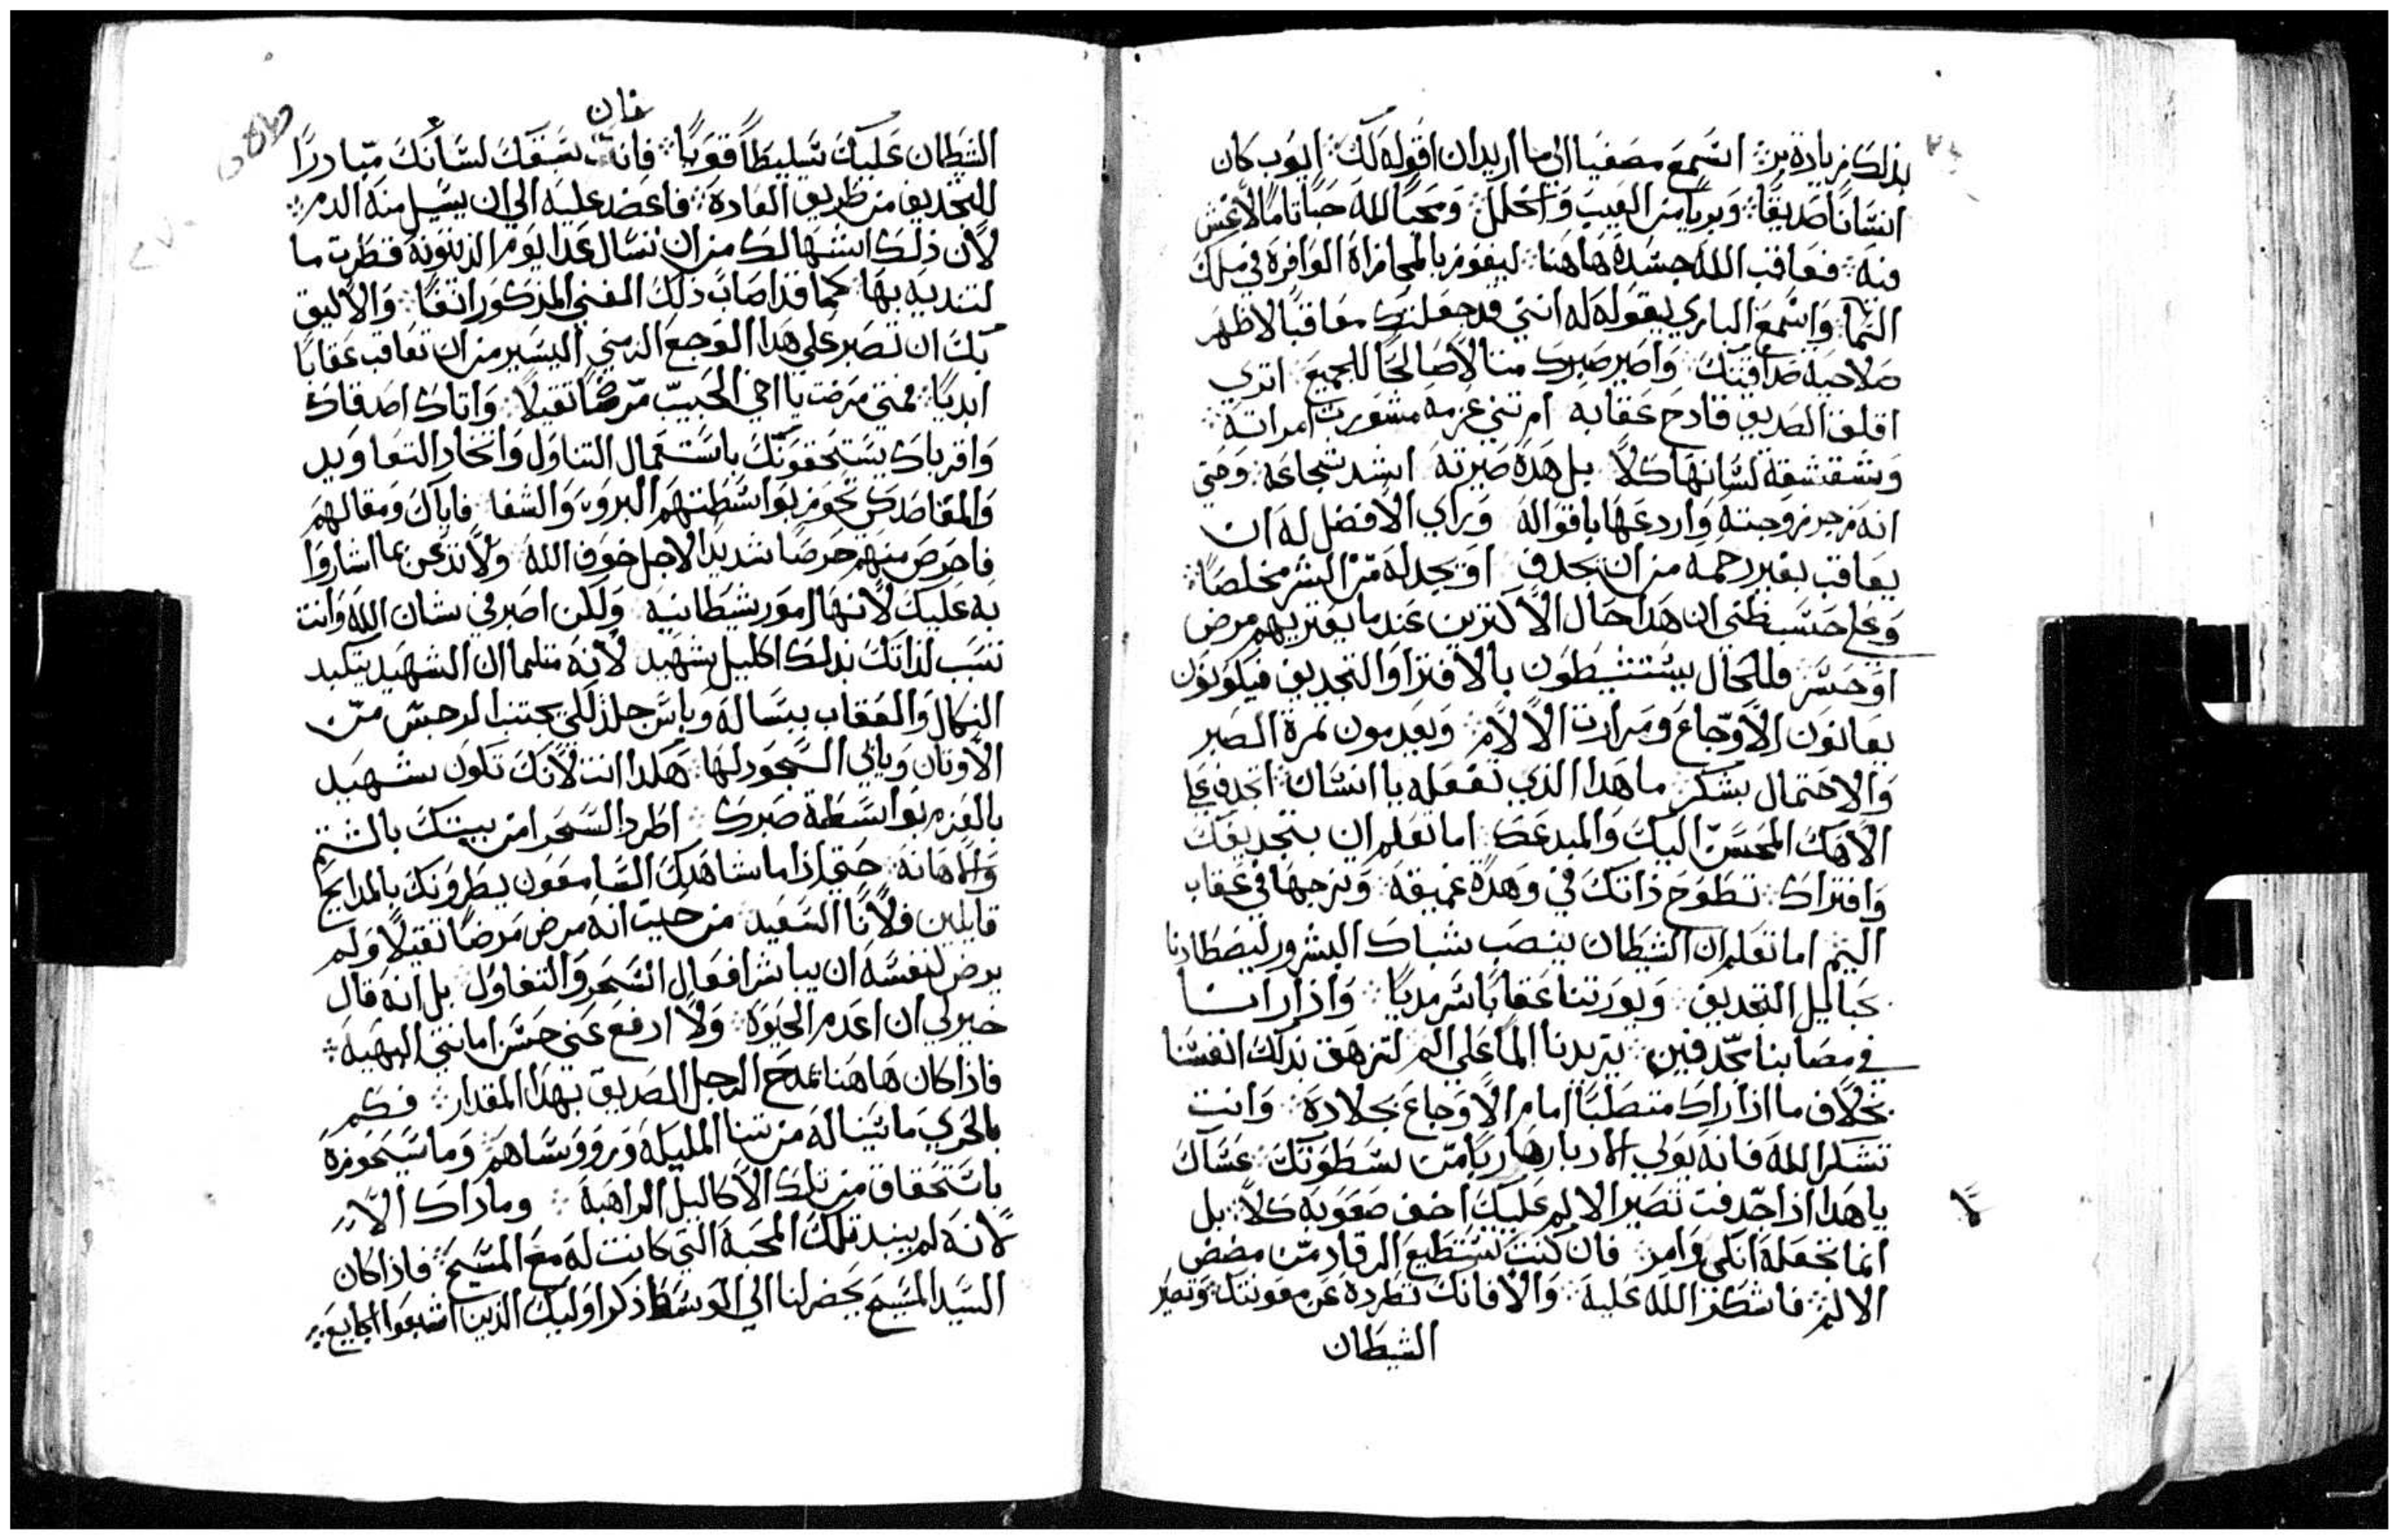 بذلك زياده من اسمع مصغيا الى ما اريد ان اقوله لك ايوب كان
انسانا صديقا وبريا من العيب والخلل ومحبا لله حبا تاما لا غش
فيه فعاقب الله جسده هاهنا ليفوز بالمجازاة الوافرة في ملك
السما واسمع الباري يقوله له انني قد جعلتك معاقبا لاظهر
صلاحية صداقتك واصير صبرك مثالا صالحا للجميع اترى
اقلق الصديق فادح عقابه ام تني عزمه مشورت امراته
وشقشقة لسانها كلا بل هذه صيرته اشد شجاعه وحتى
انه زجر زوجته واردعها باقواله وراى الافضل له ان
يعاقب بغير رحمه من ان يجدف او يجد له من البشر مخلصا
وعلى حسب ظني ان هذا حال الاكثرين عندما يعتريهم مرض
او خسر فللحال يستنشطون بالافترا والتجديف فيكونون
يعانون الاوجاع ومرارت الالام ويعدمون ثمرة الصبر
والاحتمال بشكر ما هذا الذي تفعله يا انسان اتجدف على
الاهك المحسن اليك والمبدعك اما تعلم ان بتجديفك
وافتراك تطوح ذاتك في وهدة عميقه وتزجها في عقاب
اليم اما تعلم ان الشيطان ينصب شباك الشرور ليصطادنا
بحباليل التجديف ويورتنا عقابا سرمديا واذا رانا
في مصابنا مجدفين يزيدنا الما على الم لتزهق بذلك انفسنا
بخلاف ما اذا راك متصلبا امام الاوجاع بجلادة وانت
تشكر الله فانه يولي الادبار هاربا من سطوتك عساك
يا هذا اذا جدفت تصير الالم عليك اخف صعوبه كلا بل
انما تجعله انكى وامر فان كنت تستطيع الرقاد من مضض
الالم فاشكر الله عليه والا فانك تطرده عن معونتك وتصير
الشيطان
فان
الشيطان عليك تسليطا قويا فانت تسعفك لسانك مبادرا
للتجديف من طريق العادة فاعضد عليه الى ان يسيل منه الدم
لان ذلك اسهل لك من ان تسال غدا يوم الدينونه قطرت ما
لتنديه بها كما قد اصاب ذلك الغني المذكور انفا والاليق
بك ان تصبر على هذا الوجع الزمني اليسير من ان تعاقب عقابا
ابديا فمتى مرضت يا اخي الحبيب مرضا تقيلا واتاك اصدقاك
واقرباك يستحتونك باستعمال التناول واتخاد التعاويد
والمقاصد كي تحوز بواسطتهم البرو والشفا فاياك ومقالهم
فاحرص منهم حرصا شديدا لاجل خوف الله ولا تدعن بما اشاروا
به عليك لانها امور شيطانيه ولكن اصبر في شان الله وانت
تسب لذاتك بذلك اكليل شهيد لانه مثلما ان الشهيد يتكبد
النكال والعقاب ببساله وباس جلد لكي يجتنب الرجس من
الاوتان ويابى السجود لها هكذا انت لانك تكون شهيد
بالعزم بواسطة صبرك اطرد السحرا من بيتك بالشتم
والاهانه حتى اذا ما شاهدك السامعون يطرونك بالمدايح
قايلين فلانا السعيد من حيت انه مرض مرضا تقيلا ولم
يرض لنفسه ان يباشر افعال السحر والتفاول بل انه قال
خير لي ان اعدم الحيوة ولا ارفع عني حسن امانتي البهيه
فاذا كان هاهنا تمدح الرجل الصديق بهذا المقدار فكم
بالحري ما تناله من ثنا المليكه وروساهم وما سيحوزه
باستحقاق من تلك الاكاليل الراهبة وما ذاك الا
لانه لم ينبد تلك المحبة التي كانت له مع المسيح فاذا كان
السيد المسيح يحضر لنا الى الوسط ذكر اوليك الذين اشبعوا الجايع